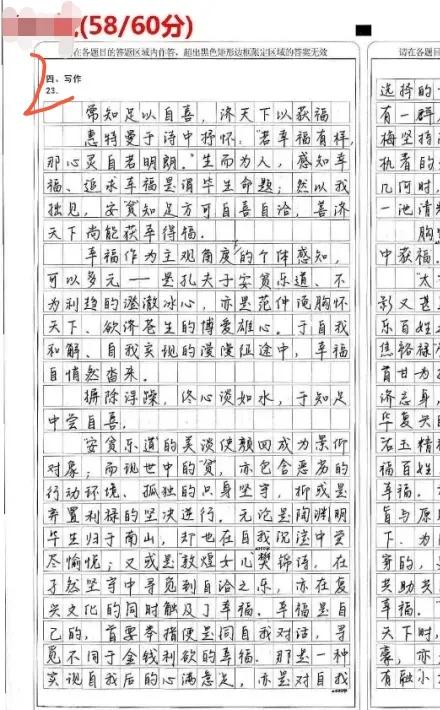 (58/60分)
请在各题目的答题区域内作答，超出黑色矩形边框限定区域的答案无效
四、写作
23.
常知足以自喜，济天下以获福
惠特曼于诗中抒怀："若幸福有样，
那心灵自若明朗。"生而为人，感知幸
福、追求幸福是谓毕生命题；然以我
拙见，安贫知足方可自喜自洽，善济
天下尚能获幸得福。
幸福作为主观角度的个体感知，
可以多元——是孔夫子安贫乐道、不
为利趋的澄澈冰心，亦是范仲淹胸怀
天下、欲济苍生的博爱雄心。于自我
和解、自我实现的漫漫征途中，幸福
自悄然踏来。
摒除浮躁，佟心淡如水，于知足
中尝自喜。
"安贫乐道"的美谈使颜回成为景仰
对象；而现世中的"贫"，亦包含恶劣的
行动环境、孤独的只身坚守，抑或是
弃置利禄的坚决进行。无论是陶渊明
毕生归于南山，却也在自我沉淀中尝
尽愉悦；又或是敦煌女儿樊锦诗，在
孑然坚守中寻觅到自洽之乐，亦在复
兴文化的同时触及了幸福。幸福是自
己的，首要举措便是同自我对话，寻
觅不同于金钱利欲的幸福。那是一种
实现自我后的心满意足，亦是对自我
请在各题目的
选择的
有一群
梅坚持
执着的
几何时，
一池清
胸
中获福。
"太
影又甚
乐百姓
焦裕禄
首甘为
济志身，
华复兴
沾玉精
福百姓
幸福。
旨与原
下、为
穷的，
共助共
幸福。
天下时，
豪，亦
有融小